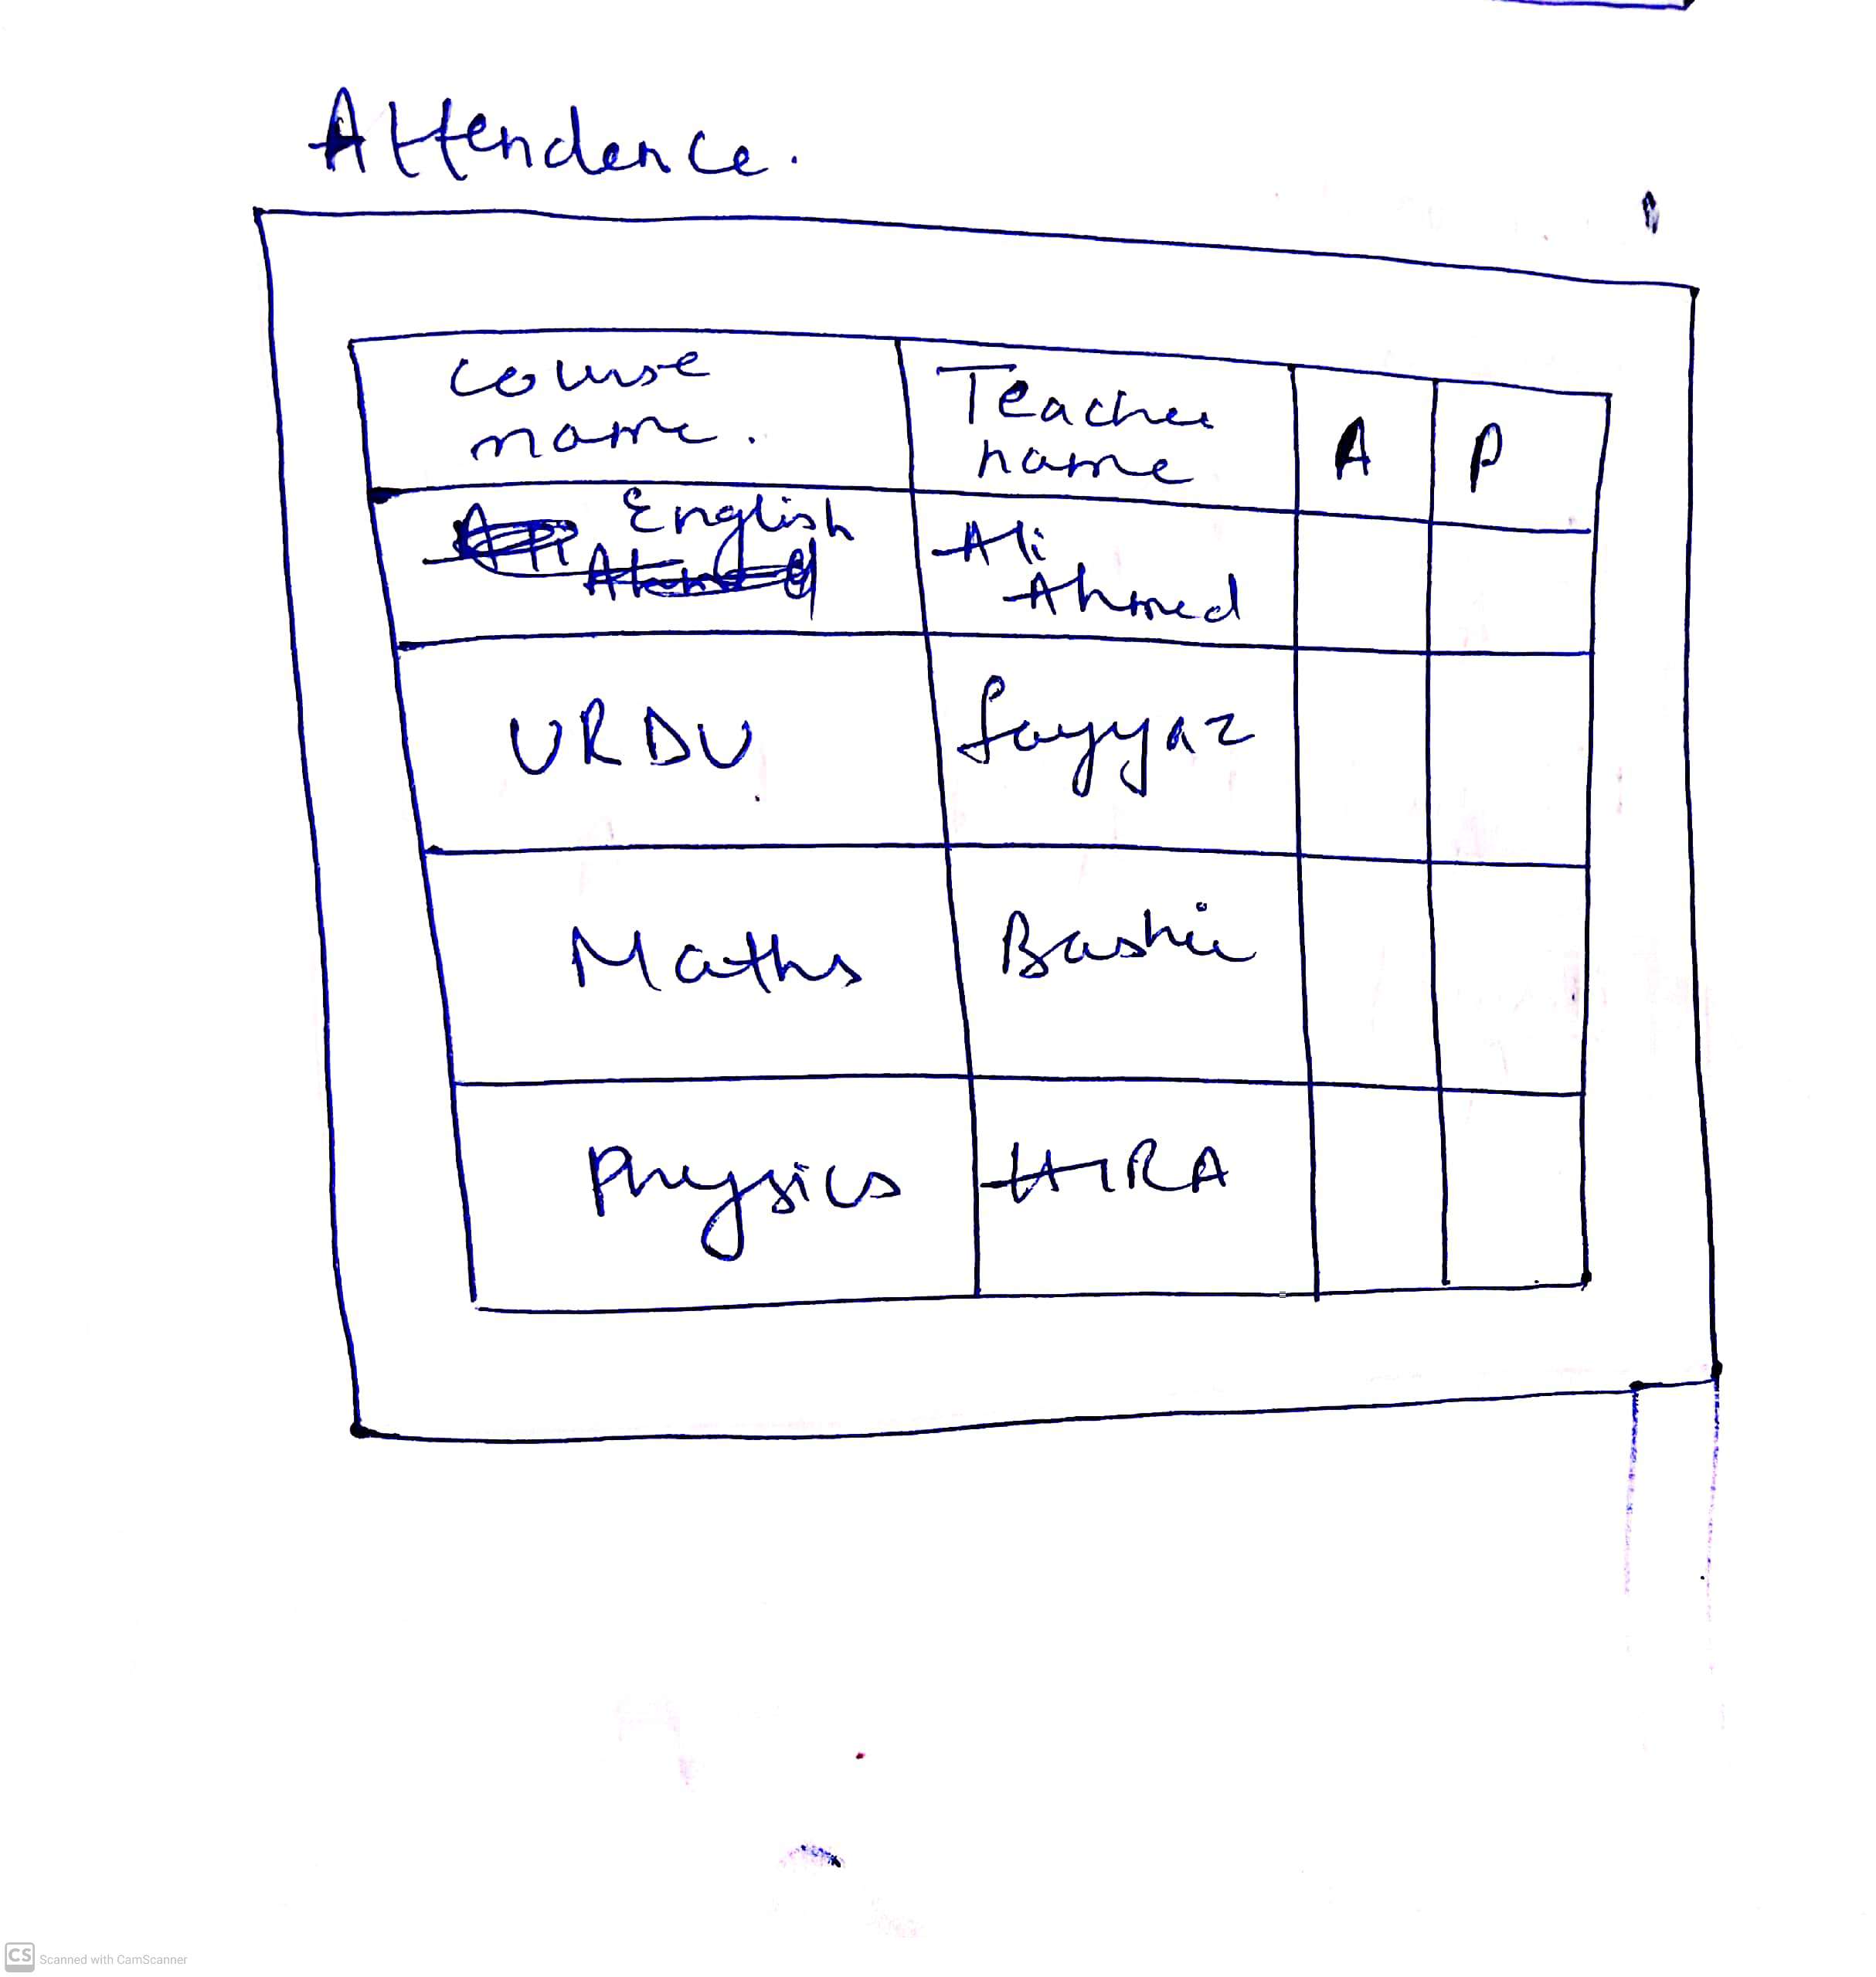 Attendence.
Course
name.
Teacher
name
A
P
English
Ali
Ahmed
URDU
fayyaz
Maths
Bashir
Physics
HIRA
CS Scanned with CamScanner